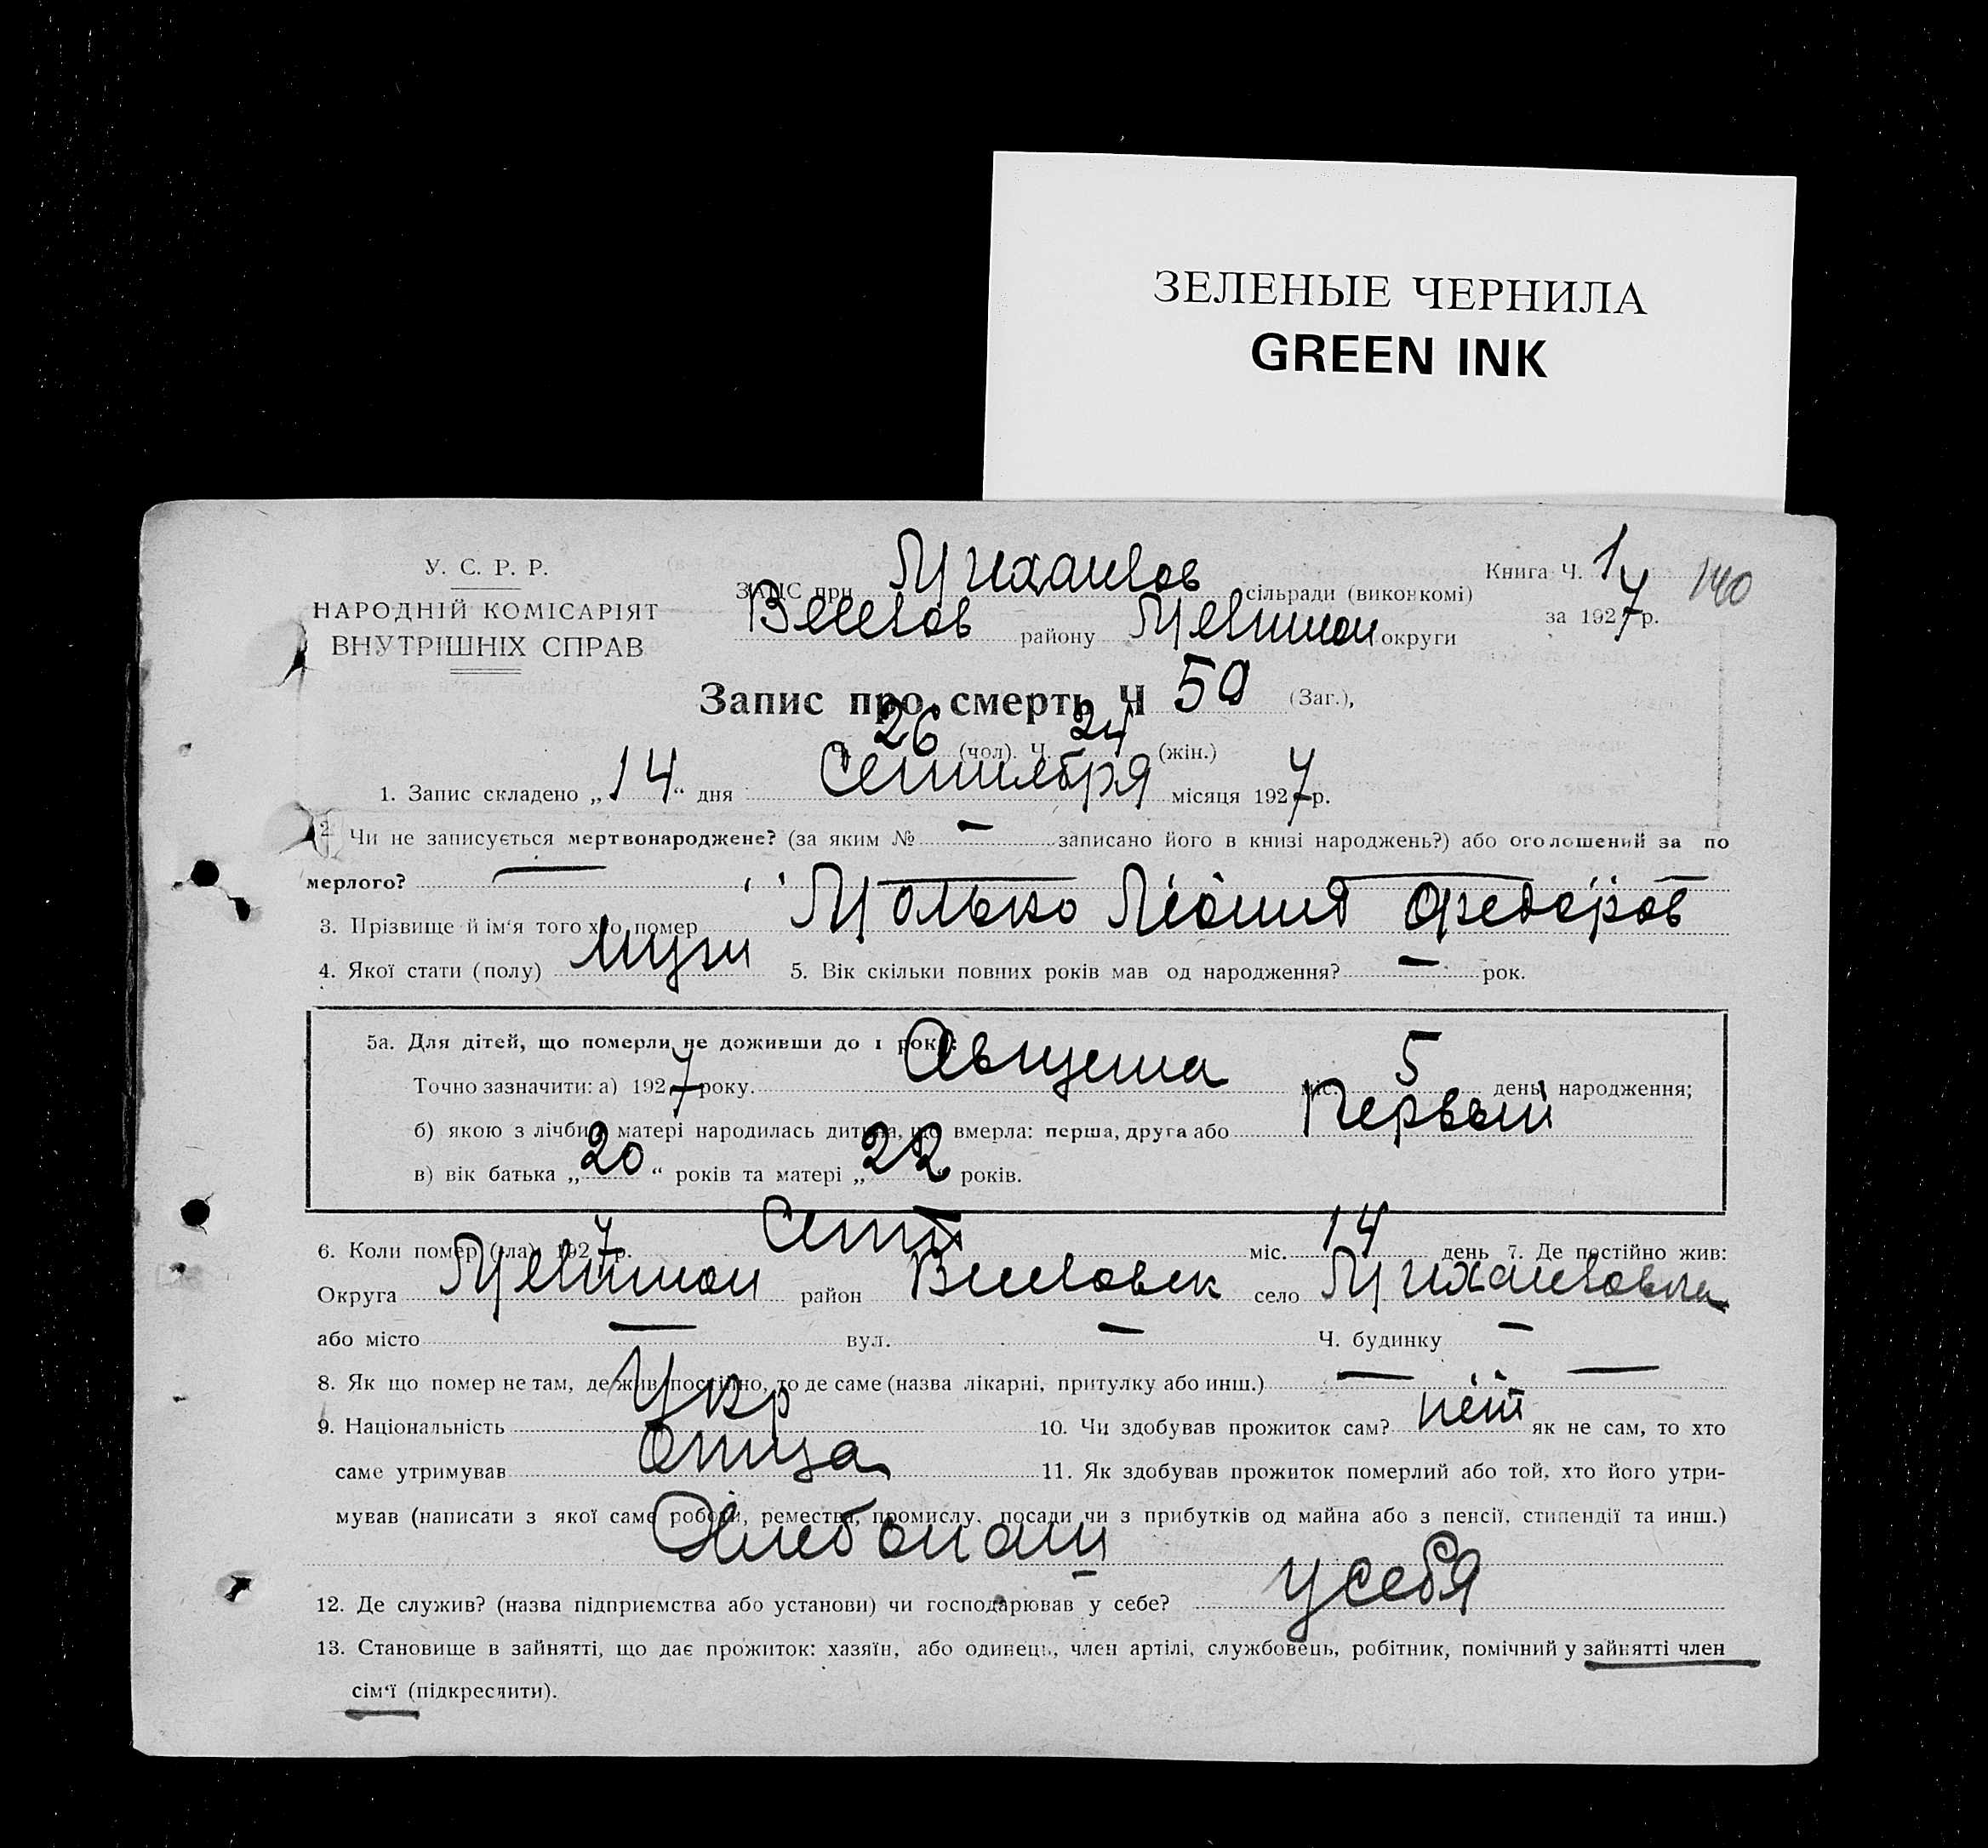 ЗЕЛЕНЫЕ ЧЕРНИЛА
GREEN INK
У. С. Р. Р.
НАРОДНІЙ КОМІСАРІЯТ
ВНУТРІШНІХ СПРАВ
ЗАЦС при Михайлов сільради (виконкомі)
Веселов району Мелитоп округи
Книга Ч. 1 140
за 1927 р.
Запис про смерть Ч 50 (Заг.),
26 (чол). Ч. 24 (жін.)
1. Запис складено „14“ дня Сентября місяця 1927 р.
2 Чи не записується мертвонароджене? (за яким № — записано його в книзі народжень?) або оголошений за по
мерлого? —
3. Прізвище й ім‘я того хто помер Молько Леонид Федоров
4. Якої стати (полу) мужч 5. Вік скільки повних років мав од народження? — рок.
5а. Для дітей, що померли не доживши до 1 року:
Точно зазначити: а) 1927 року. Августа міс. 5 день народження;
б) якою з лічби у матері народилась дитина, що вмерла: перша, друга або Первый
в) вік батька „20“ років та матері „22 років.
6. Коли помер (ла) 1927 р. Сент міс. 14 день 7. Де постійно жив:
Округа Мелитоп район Веселовск село Михайловка
або місто — вул. — Ч. будинку —
8. Як що помер не там, де жив постійно, то де саме (назва лікарні, притулку або инш.) — —
9. Національність Укр 10. Чи здобував прожиток сам? нет як не сам, то хто
саме утримував Отца 11. Як здобував прожиток померлий або той, хто його утри-
мував (написати з якої саме роботи, ремества, промислу, посади чи з прибутків од майна або з пенсії, стипендії та инш.)
Хлебопаш
12. Де служив? (назва підприємства або установи) чи господарював у себе? у себя
13. Становище в зайнятті, що дає прожиток: хазяїн, або одинець, член артілі, службовець, робітник, помічний у зайнятті член
сім‘ї (підкреслити).